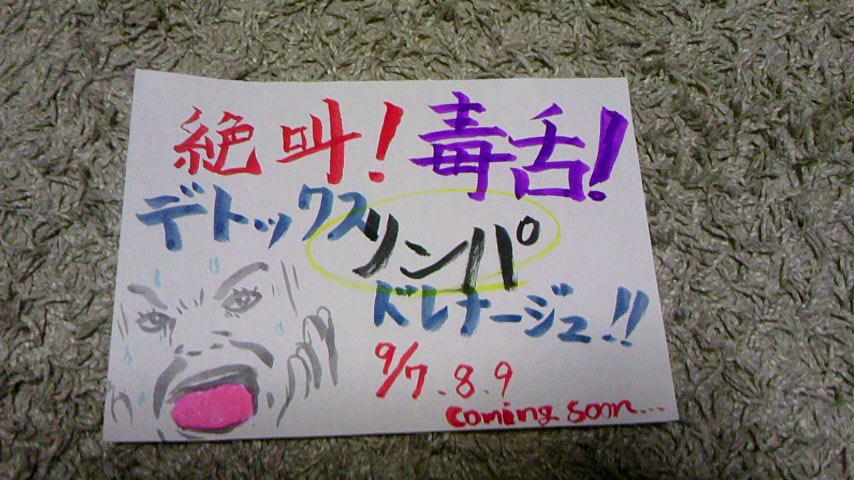 絶叫!毒舌!
デトックスリンパ
ドレナージュ!!
9/7.8.9
coming soon...